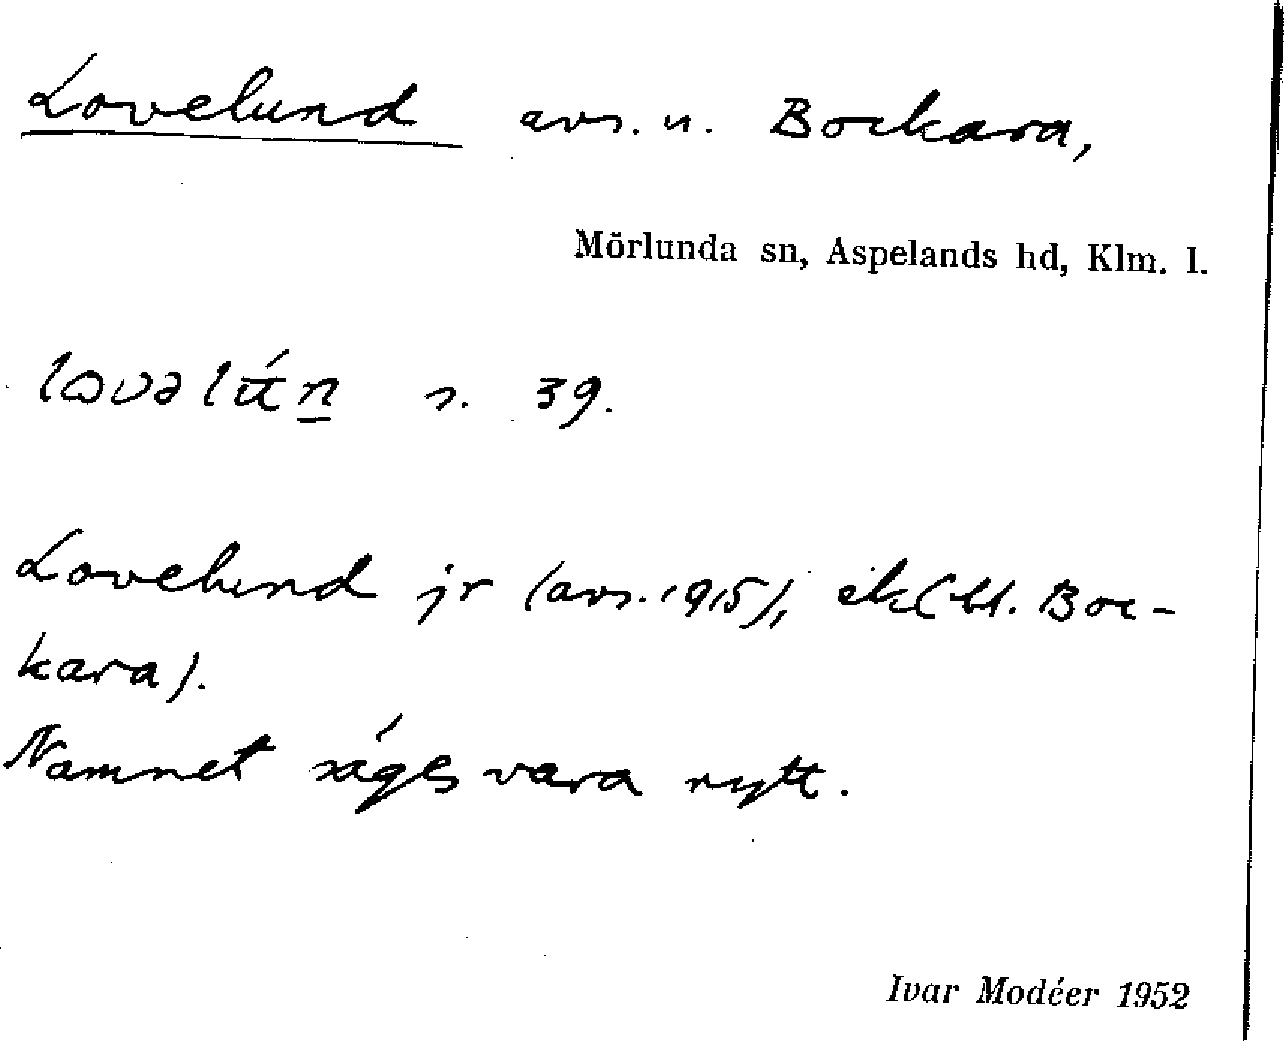 Lovelund avs. u. Bockara,
Mörlunda sn, Aspelands hd, Klm. l.
s. 39.
Lovelund jr (avs. 1915), ek (bl. Boc-
kara).
Namnet säges vara nytt.
Ivar Modéer 1952